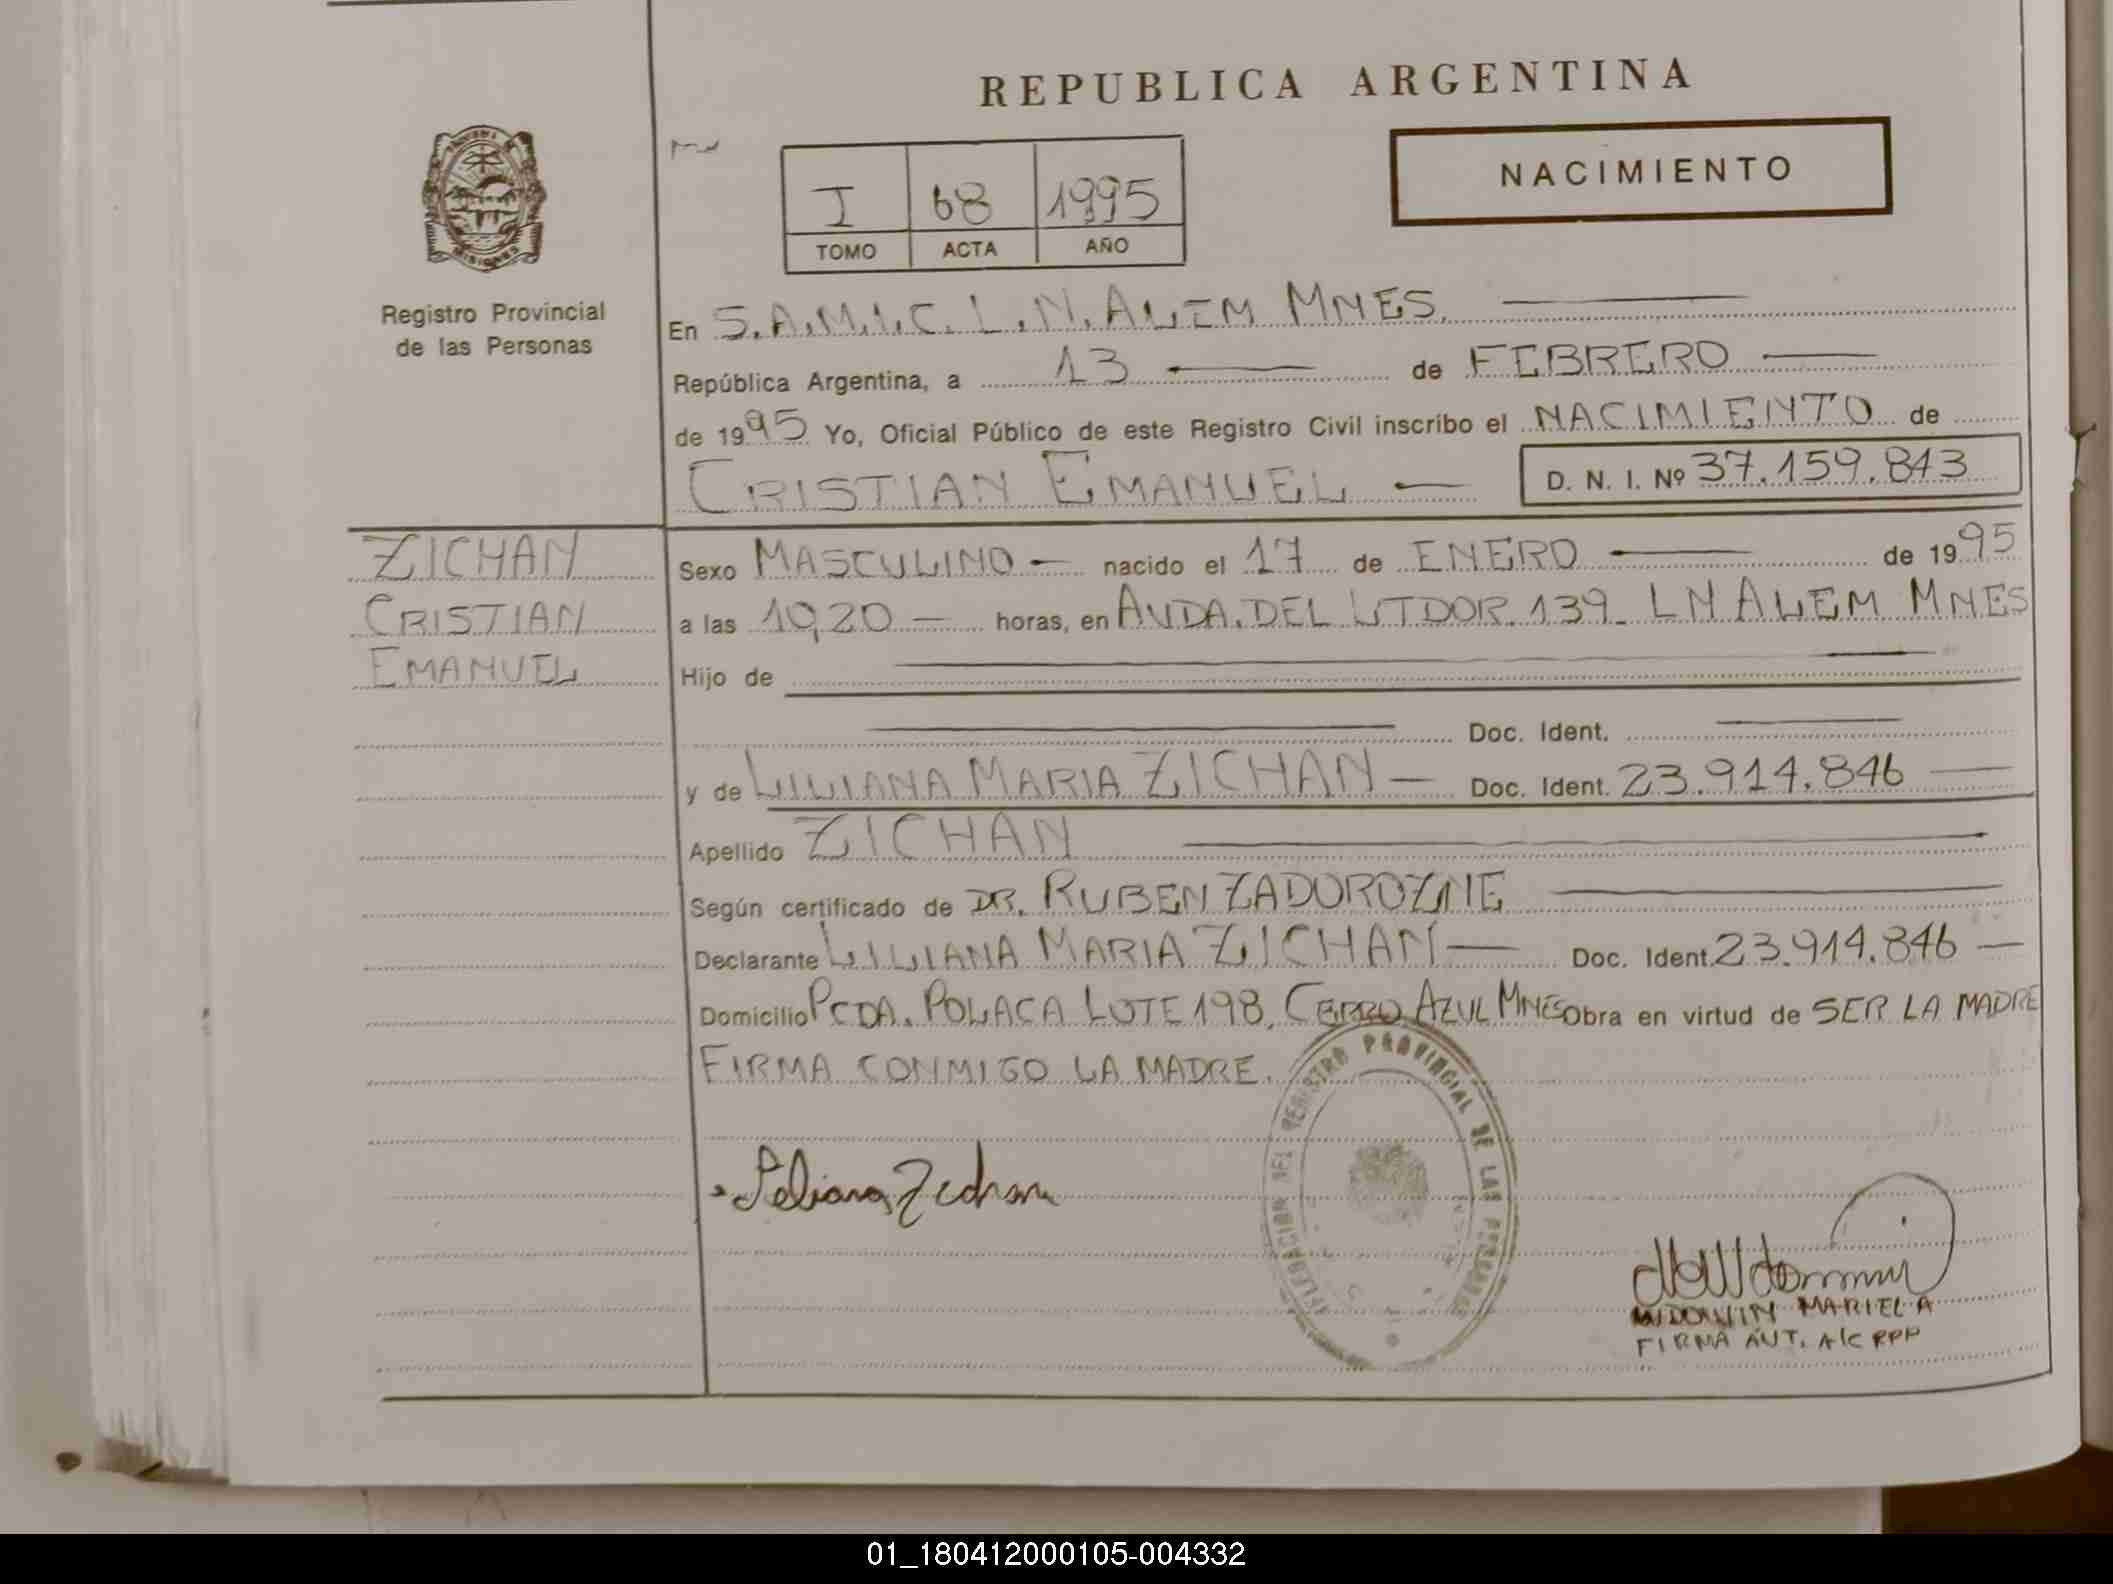 REPUBLICA ARGENTINA
NACIMIENTO
I 68 1995
TOMO ACTA AÑO
MISIONES
Registro Provincial
de las Personas
En S.A.M.I.C. L.N. ALEM MNES.
República Argentina, a 13 de FEBRERO
de 1995 Yo, Oficial Público de este Registro Civil inscribo el NACIMIENTO de
CRISTIAN EMANUEL D. N. I. Nº 37.159.843
ZICHAN
CRISTIAN
EMANUEL
Sexo MASCULINO nacido el 17 de ENERO de 1995
a las 10,20 horas, en AVDA. DEL LTDOR. 139. LN ALEM MNES
Hijo de
Doc. Ident.
y de LILIANA MARIA ZICHAN Doc. Ident. 23.914.846
Apellido ZICHAN
Según certificado de DR. RUBEN ZADOROZNE
Declarante LILIANA MARIA ZICHAN Doc. Ident. 23.914.846
Domicilio PCDA. POLACA LOTE 198, CERRO AZUL MNES Obra en virtud de SER LA MADRE
FIRMA CONMIGO LA MADRE.
DELEGACION DEL REGISTRO PROVINCIAL DE LAS PERSONAS
Liliana Zichan
MARIELA
FIRMA AUT. A/C RPP
01_180412000105-004332